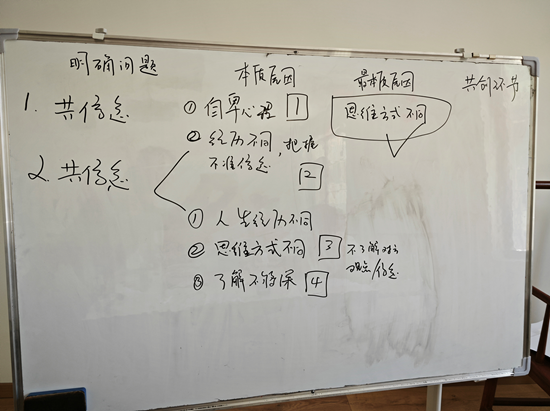 明确问题
本质原因
最本质原因
共创环节
1. 共信息
① 自卑心理 1
② 经历不同,把握
不准信息 2
思维方式不同
2. 共信息
① 人生经历不同
② 思维方式不同 3
不了解对方
观点/信息
③ 了解不够深 4